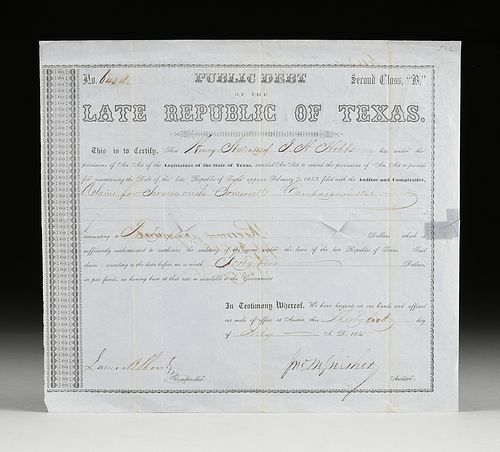 No.
PUBLIC DEBT
Second Class, "B."
OF THE
LATE REPUBLIC OF TEXAS.
This is to Certify, That Henry has under the
provisions of An Act of the Legislature of the state of Texas, entitled An Act to extend the provisions of An Act to provide
for ascertaining the Debt of the late Republic of Texas approved February 7, 1853 filed with the Auditor and Comptroller,
A claim for Services on the Somervell Campaign in 1842
amounting to Dollars which is
sufficiently authenticated to authorize the auditing of the same under the laws of the late Republic of Texas Said
claim, according to the data before us is worth Dollars,
in par funds, as having been at that rate so available to the Government
In Testimony Whereof, We have hereunto set our hands and affixed
our seals of office, at Austin, this day
of July A. D. 185
James B Shaw
Comptroller
Auditor